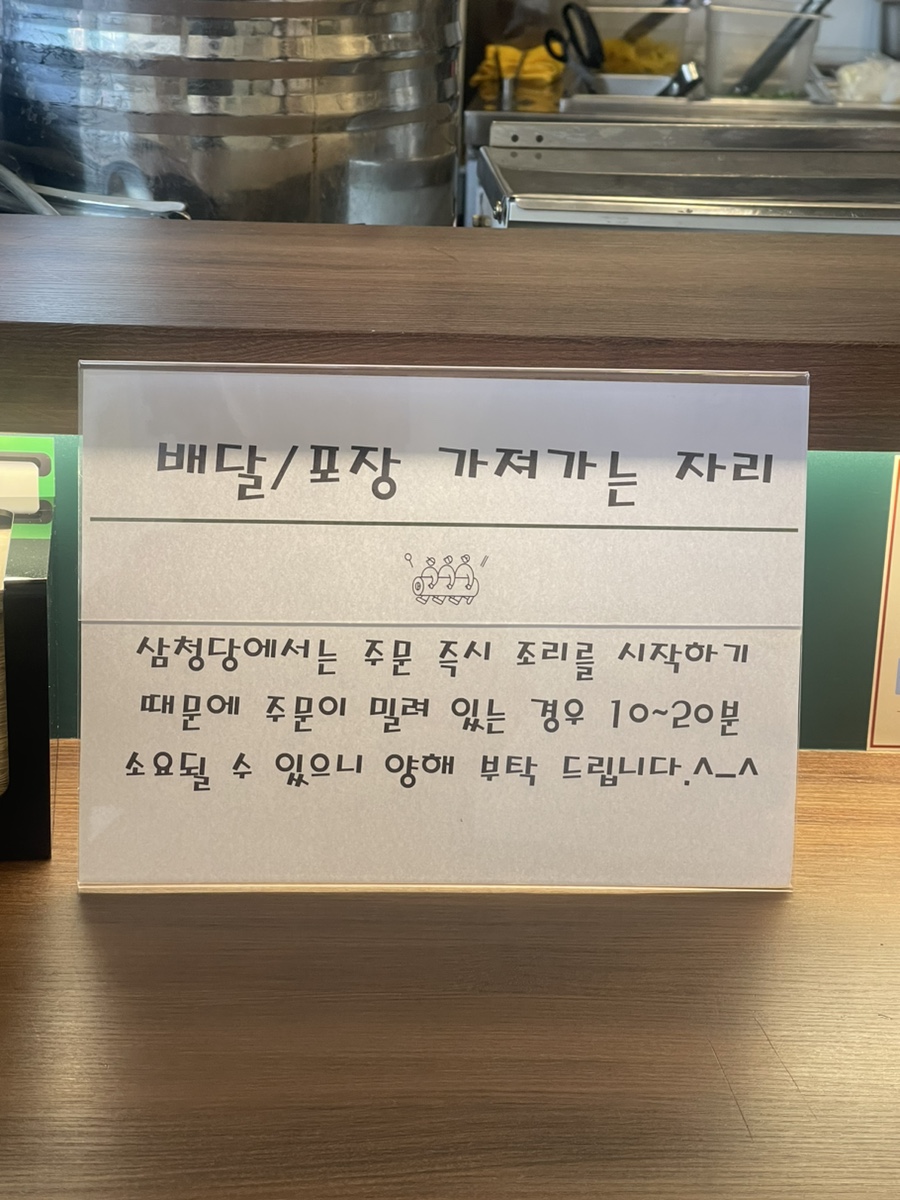 배달/포장 가져가는 자리
삼청당에서는 주문 즉시 조리를 시작하기
때문에 주문이 밀려 있는 경우 10~20분
소요될 수 있으니 양해 부탁 드립니다.^_^